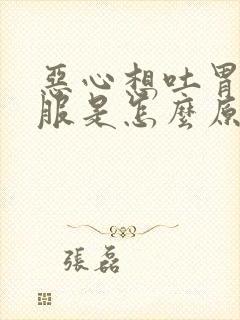 惡心想吐胃
服是怎麼原
張磊